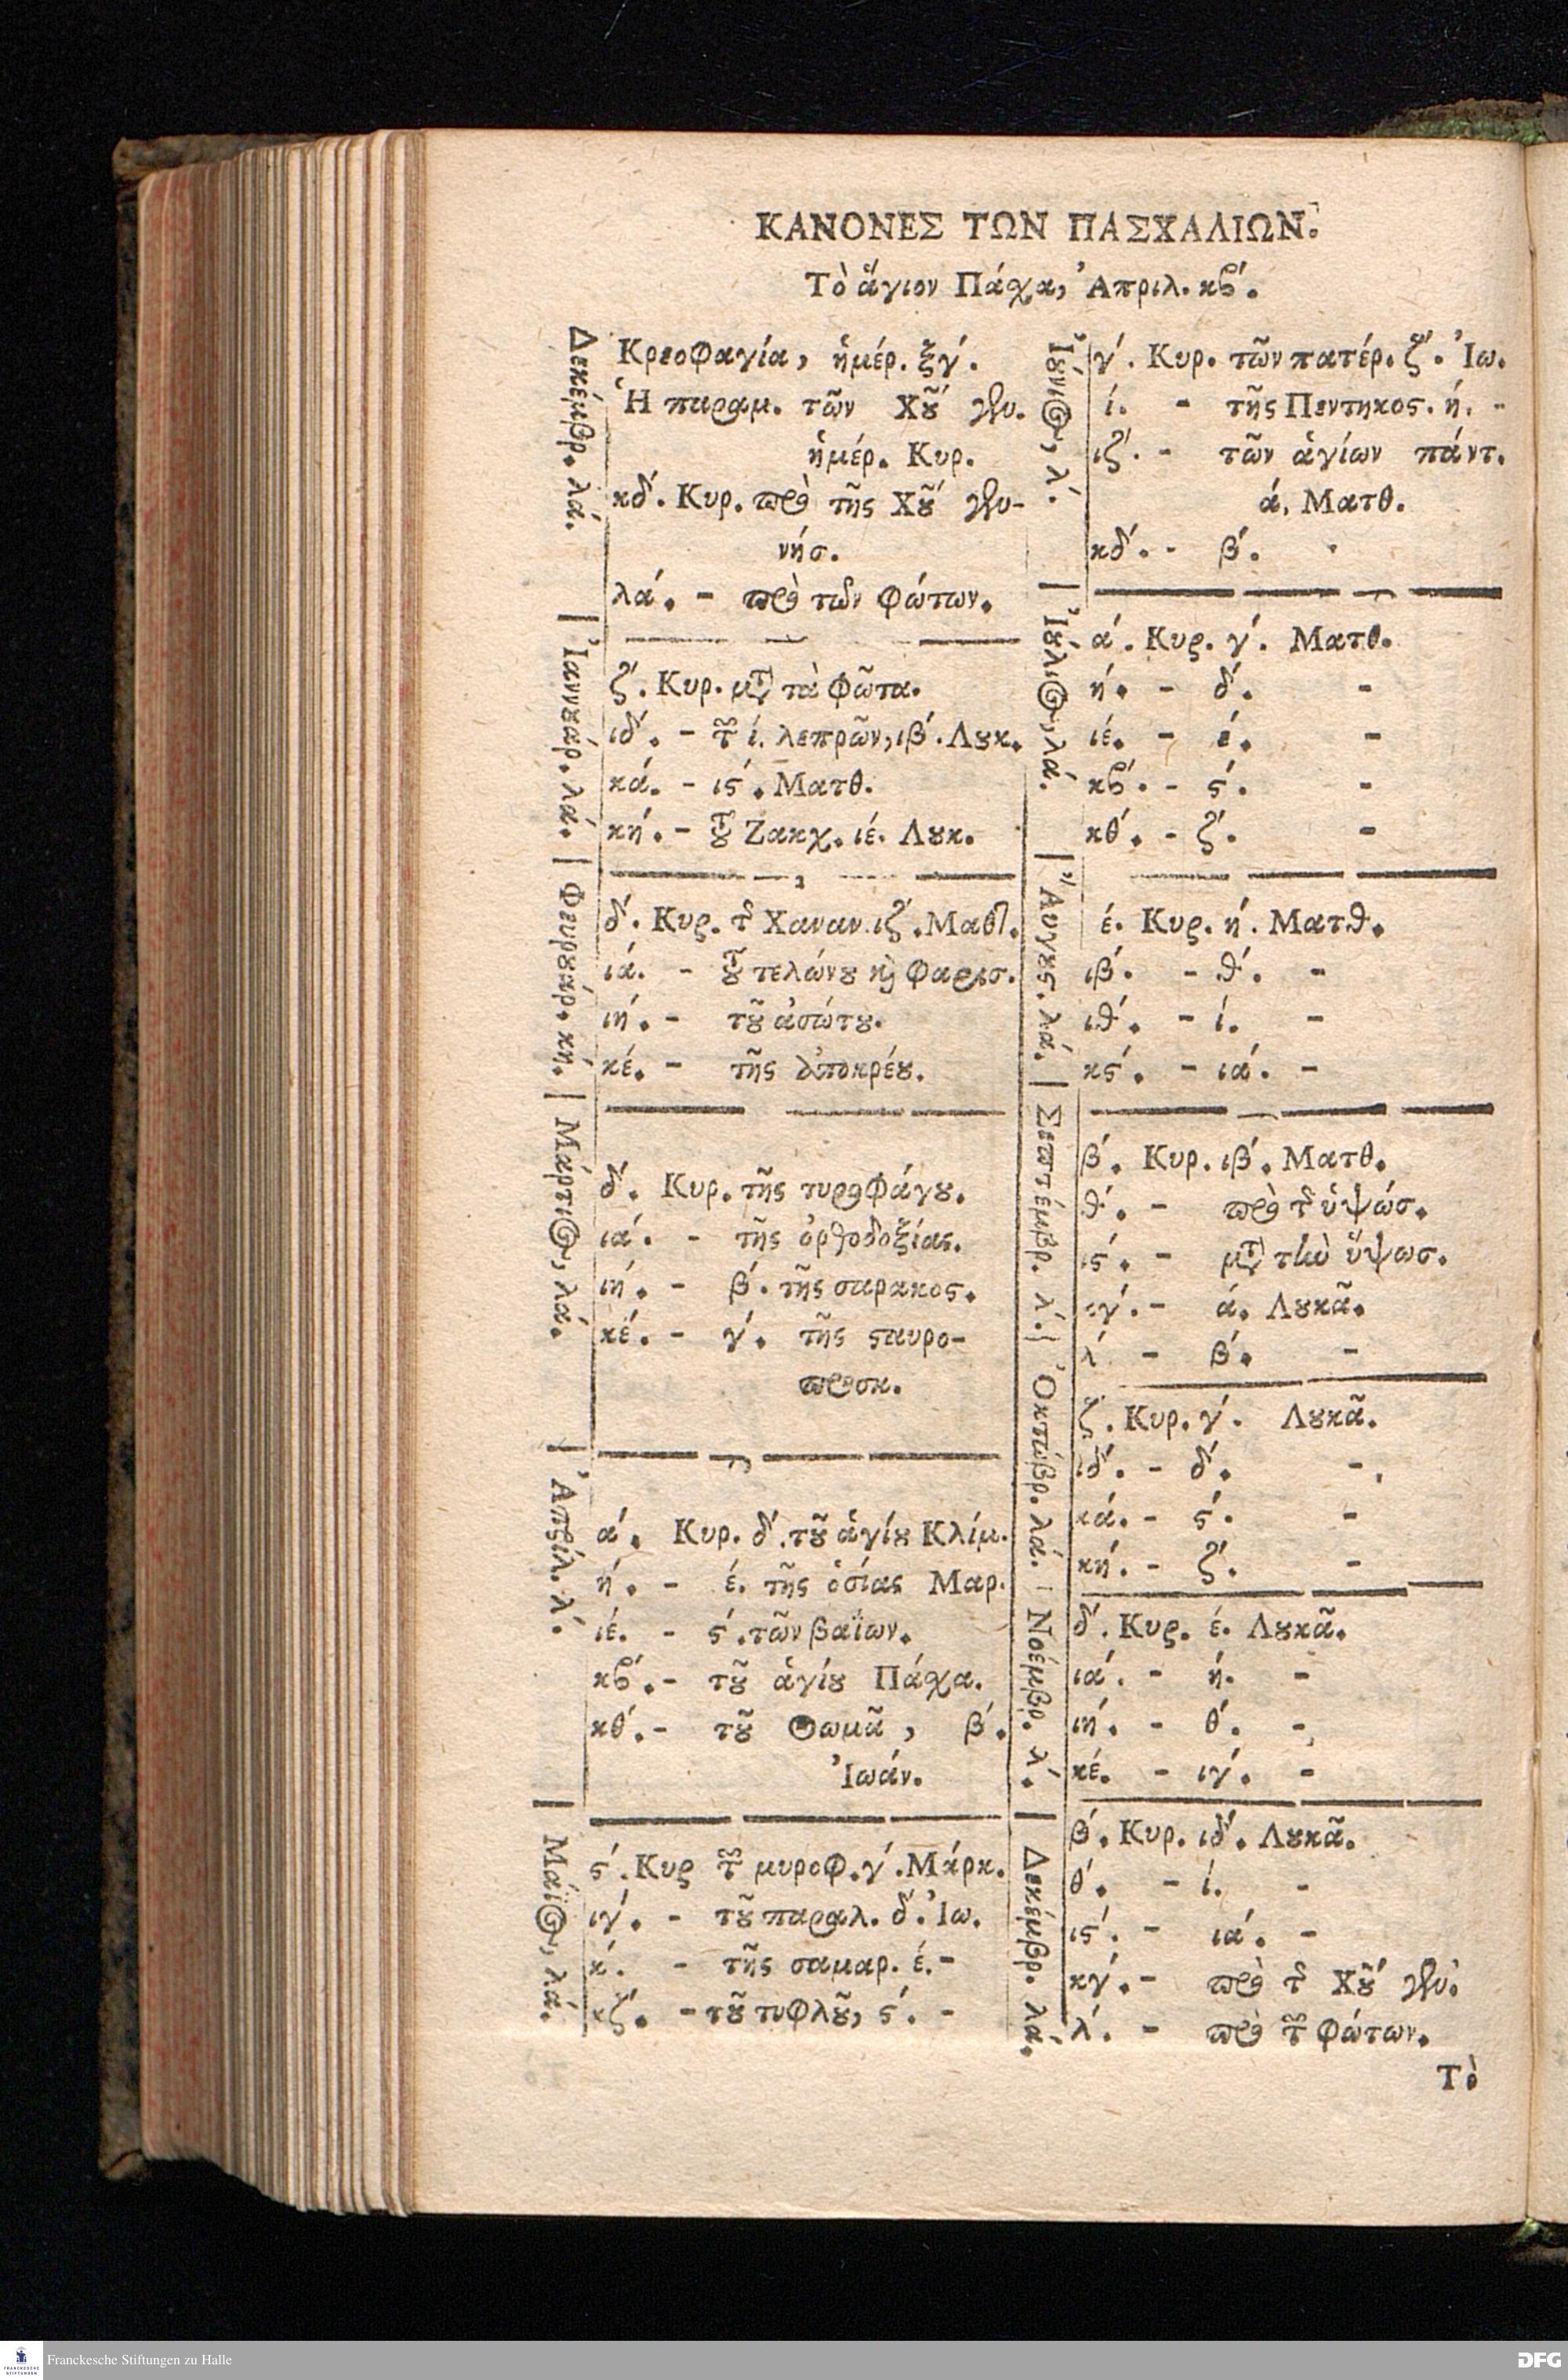 ΚΑΝΟΝΕΣ ΤΩΝ ΠΑΣΧΑΛΙΩΝ.
Τὸ ἅγιον Πάχα, Ἀπριλ. κβ´.
Δεκέμβρ. λά.
Κρεοφαγία, ἡμέρ. ξγ´.
Ἡ παραμ. τῶν Χȣ῀ γεν.
ἡμέρ. Κυρ.
κδ´. Κυρ. πρὸ τῆς Χȣ῀ γεν-
νήσ.
λα´. - πρὸ τῶν Φώτων.
Ἰαννȣάρ. λά.
ζ´. Κυρ. μετ τὰ Φῶτα.
ιδ´. - τῶν ί. λεπρῶν, ιβ´. Λȣκ.
κά. - ις´. Ματθ.
κή. - τοῦ Ζακχ. ιέ. Λȣκ.
Φευρȣάρ. κή.
δ´. Κυρ. τῆς Χαναν. ιζ´. Ματθ.
ιά. - τοῦ τελώνȣ καὶ Φαρισ.
ιή. - τȣ῀ ἀσώτȣ.
κέ. - τῆς ἀποκρέȣ.
Μάρτιος, λά.
δ´. Κυρ. τῆς τυροφάγȣ.
ιά. - τῆς ὀρθοδοξίας.
ιή. - β´. τῆς σαρακος.
κέ. - γ´. τῆς ςαυρο-
προσκ.
Ἀπρίλ. λ´.
α´. Κυρ. δ´. τȣ῀ ἁγίȣ Κλίμ.
ή. - έ. τῆς ὁσίας Μαρ.
ιέ. - ς´. τῶν βαΐων.
κβ´. - τȣ῀ ἁγίȣ Πάχα.
κθ´. - τȣ῀ Θωμᾶ, β´.
Ἰωάν.
Μάϊος, λά.
ς´. Κυρ τῶν μυροφ. γ´. Μάρκ.
ιγ´. - τȣ῀ παραλ. δ´. Ἰω.
κ´. - τῆς σαμαρ. έ. -
κζ´. - τȣ῀ τυφλȣ῀, ς´. -
Ἰȣ́νιος, λ´.
γ´. Κυρ. τῶν πατέρ. ζ´. Ἰω.
ί. - τῆς Πεντηκος. ή. -
ιζ´. - τῶν ἁγίων πάντ.
ά. Ματθ.
κδ´. - β´. -
Ἰȣ́λιος, λά.
ά. Κυρ. γ´. Ματθ.
ή. - δ´. -
ιέ. - έ. -
κβ´. - ς´. -
κθ´. - ζ´. -
Αὔγȣς. λά.
έ. Κυρ. ή. Ματθ.
ιβ´. - θ´. -
ιθ´. - ί. -
κς´. - ιά. -
Σεπτέμβρ. λ´.
β´. Κυρ. ιβ´. Ματθ.
θ´. - πρὸ τῆς ὑψώσ.
ις´. - μετ τὴν ὕψωσ.
κγ´. - ά. Λȣκᾶ.
λ´ - β´. -
Ὀκτώβρ. λά.
ζ´. Κυρ. γ´. Λȣκᾶ.
ιδ´. - δ´. -
κά. - ς´. -
κή. - ζ´. -
Νοέμβρ. λ´.
δ´. Κυρ. έ. Λȣκᾶ.
ιά. - ή. -
ιή. - θ´. -
κέ. - ιγ´. -
Δεκέμβρ. λά.
β´. Κυρ. ιδ´. Λȣκᾶ.
θ´. - ί. -
ις´. - ιά. -
κγ´. - πρὸ τῆς Χȣ῀ γεν.
λ´. - πρὸ τῶν Φώτων.
Τὸ
FRANCKESCHE STIFTUNGEN
Franckesche Stiftungen zu Halle
DFG